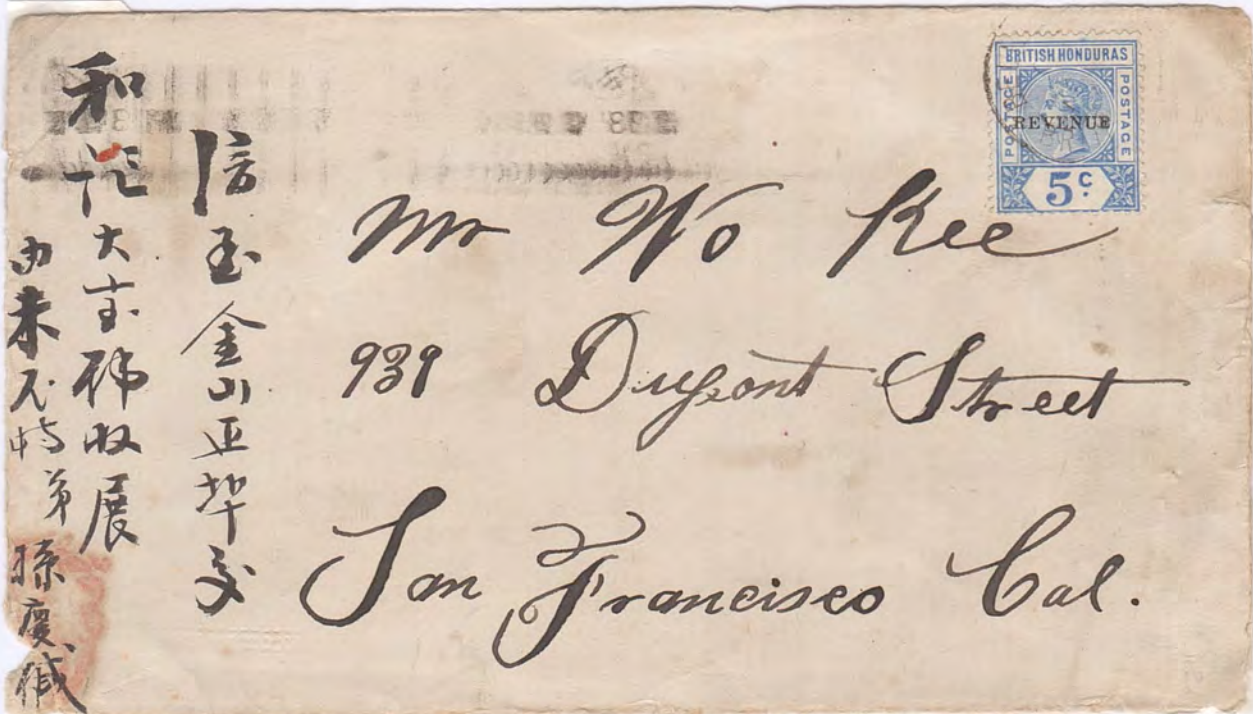 BRITISH HONDURAS
POSTAGE
POSTAGE
REVENUE
5c.
Mr Wo Kee
939 Dupont Street
San Francisco Cal.
信至金山正埠交
和記大宝號收展
由来 弟孫慶緘